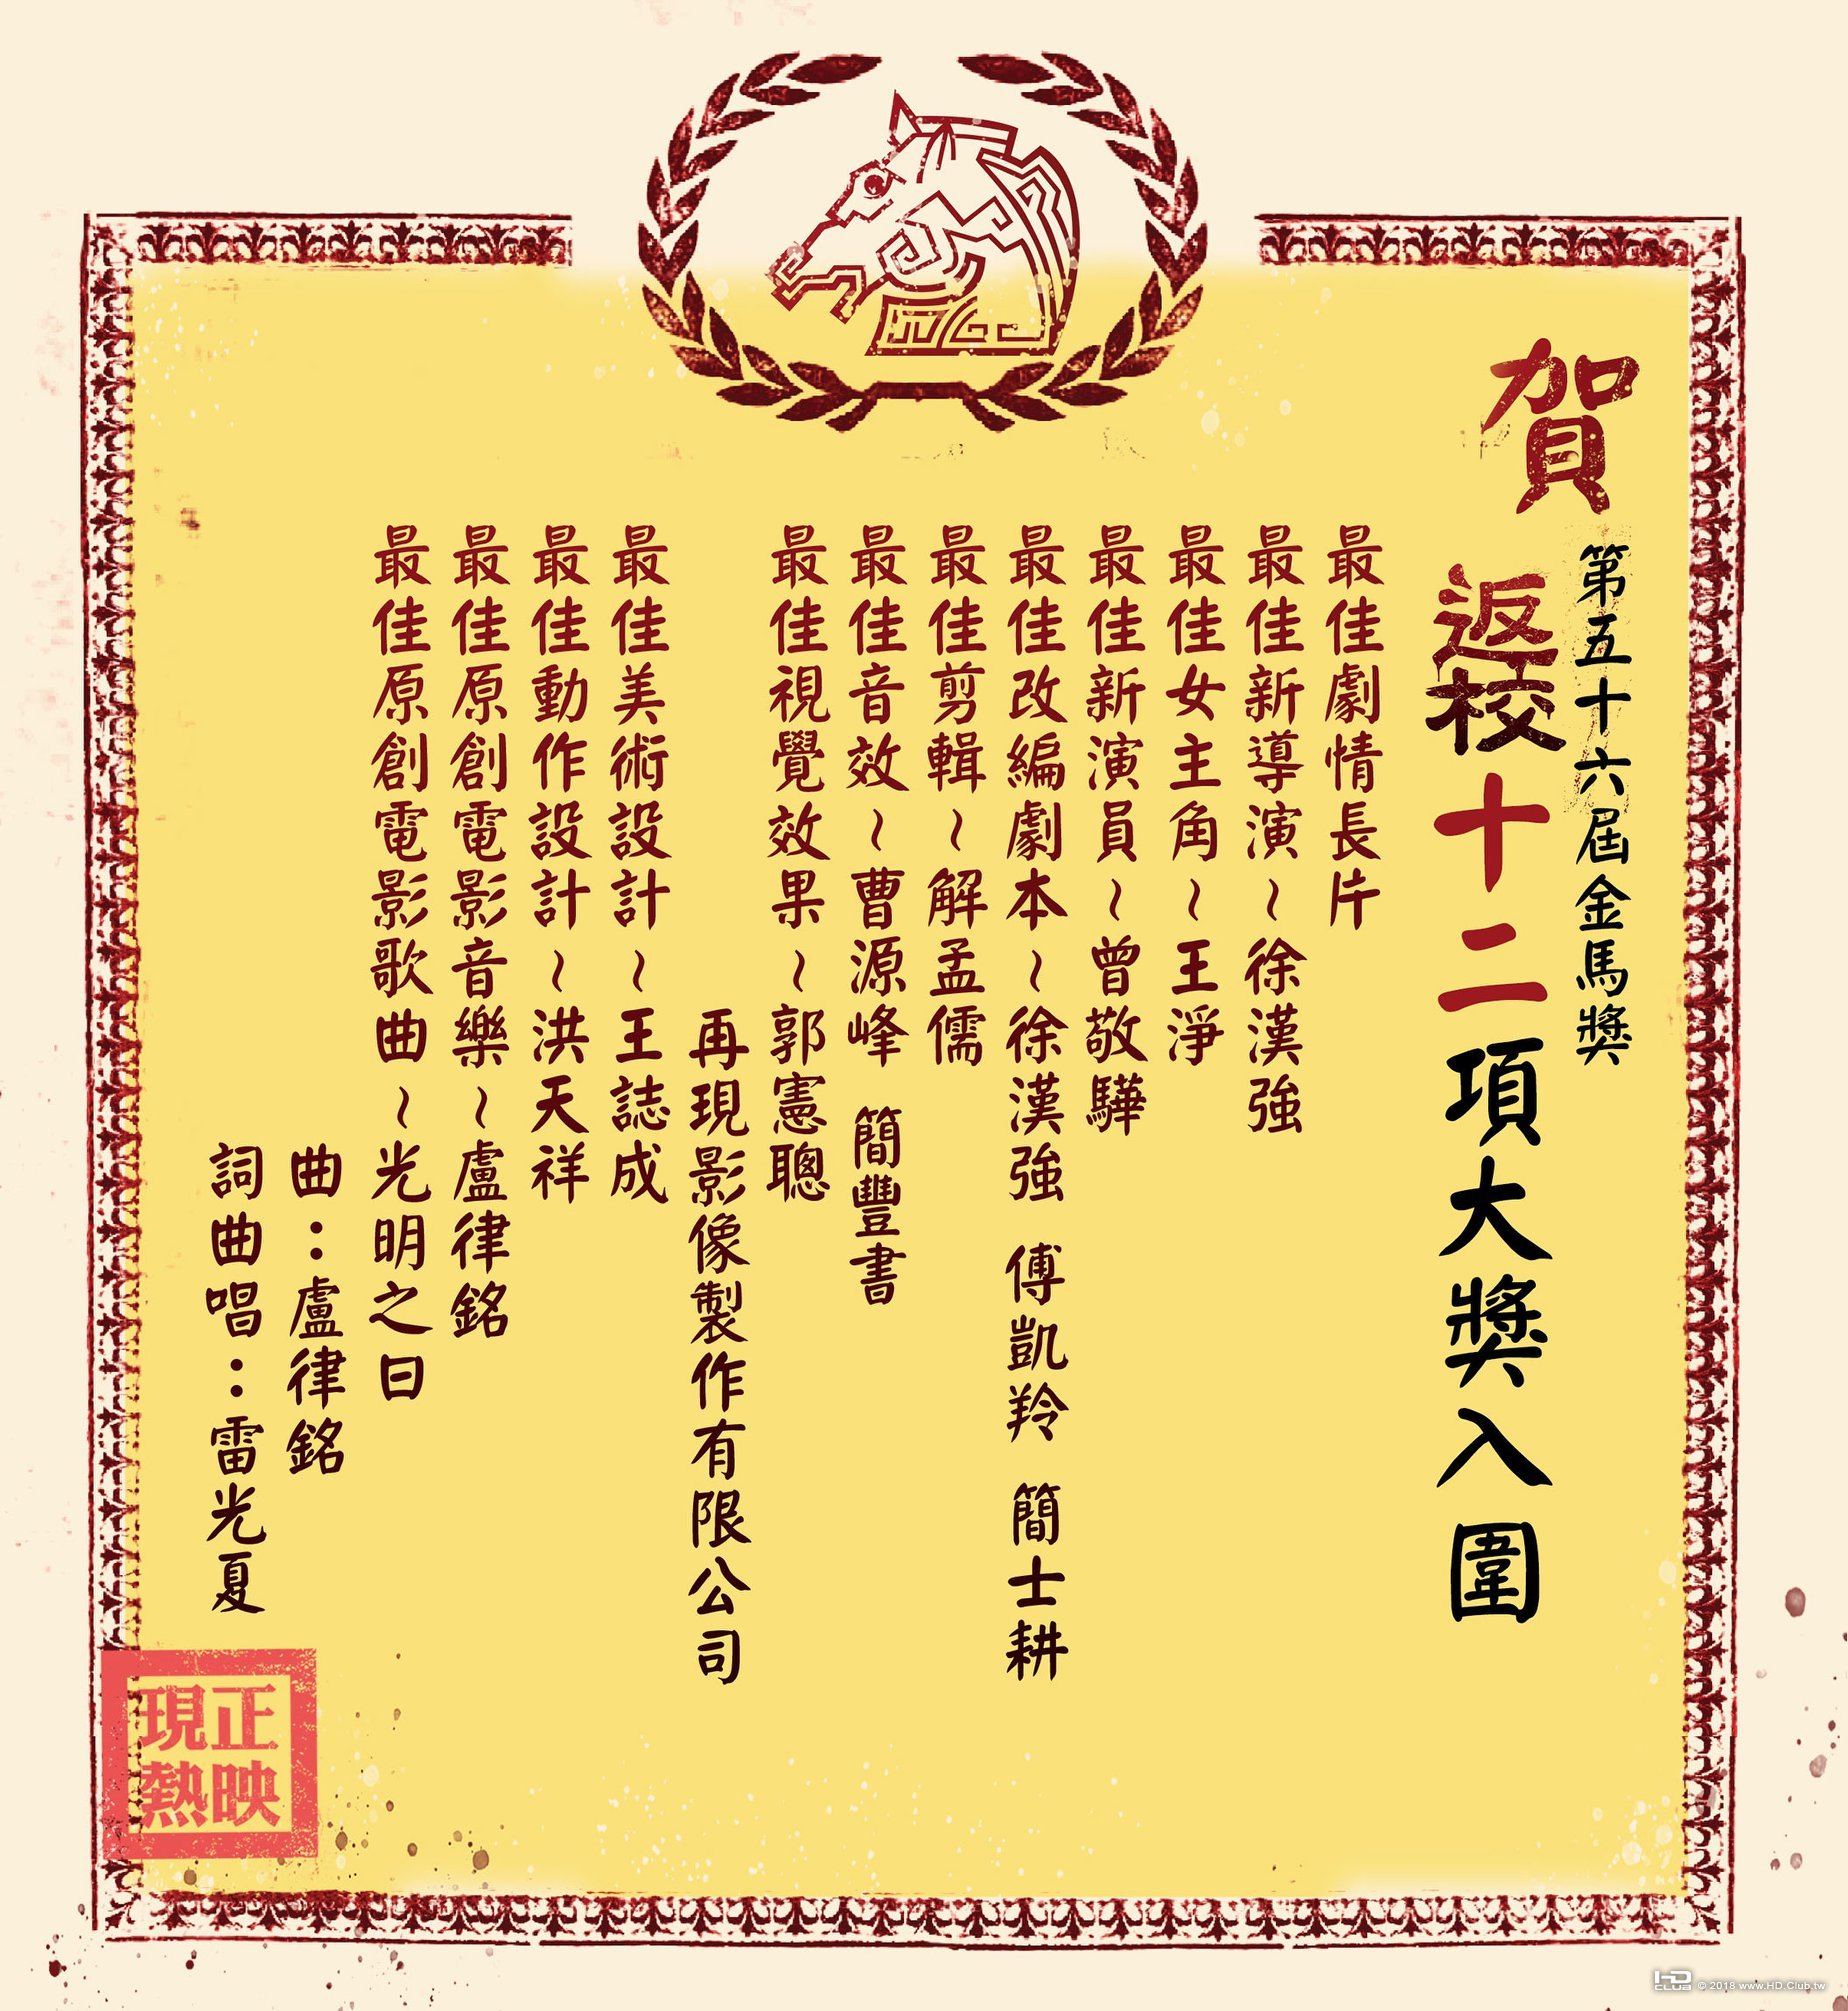 賀
第五十六屆金馬獎
返校十二項大獎入圍
最佳劇情長片
最佳新導演~徐漢強
最佳女主角~王淨
最佳新演員~曾敬驊
最佳改編劇本~徐漢強 傅凱羚 簡士耕
最佳剪輯~解孟儒
最佳音效~曹源峰 簡豐書
最佳視覺效果~郭憲聰
再現影像製作有限公司
最佳美術設計~王誌成
最佳動作設計~洪天祥
最佳原創電影音樂~盧律銘
最佳原創電影歌曲~光明之日
曲：盧律銘
詞曲唱：雷光夏
正映
現熱
HD CLUB © 2018 www.HD.Club.tw